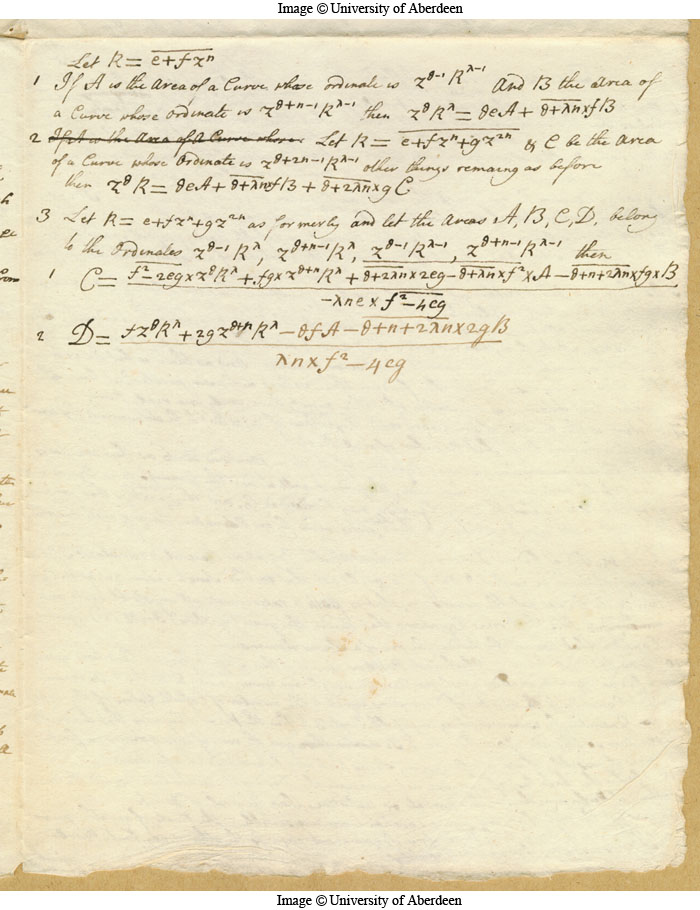 Image © University of Aberdeen
Let R = e + fzⁿ
1 If A is the Area of a Curve whose ordinate is z^θ−1 R^λ−1 And B the area of
a Curve whose Ordinate is z^θ+n−1 R^λ−1 then z^θ R^λ = θeA + θ+λn × fB
2 If A is the Area of a Curve whose Let R = e + fzⁿ + gz²ⁿ & C be the Area
of a Curve whose Ordinate is z^θ+2n−1 R^λ−1 other things remaing as before
then z^θ R = θeA + θ+λn × fB + θ+2λn × gC
3 Let R = e + fzⁿ + gz²ⁿ as formerly and let the Areas A, B, C, D, belong
to the Ordinates z^θ−1 R^λ, z^θ+n−1 R^λ, z^θ−1 R^λ−1, z^θ+n−1 R^λ−1 then
1 C = f² − 2eg × z^θ R^λ + fg × z^θ+n R^λ + θ+2λn × 2eg − θ+λn × f² × A − θ+n+2λn × fg × B
−λne × f² − 4eg
2 D = fz^θ R^λ + 2gz^θ+n R^λ − θfA − θ+n+2λn × 2gB
λn × f² − 4eg
Image © University of Aberdeen